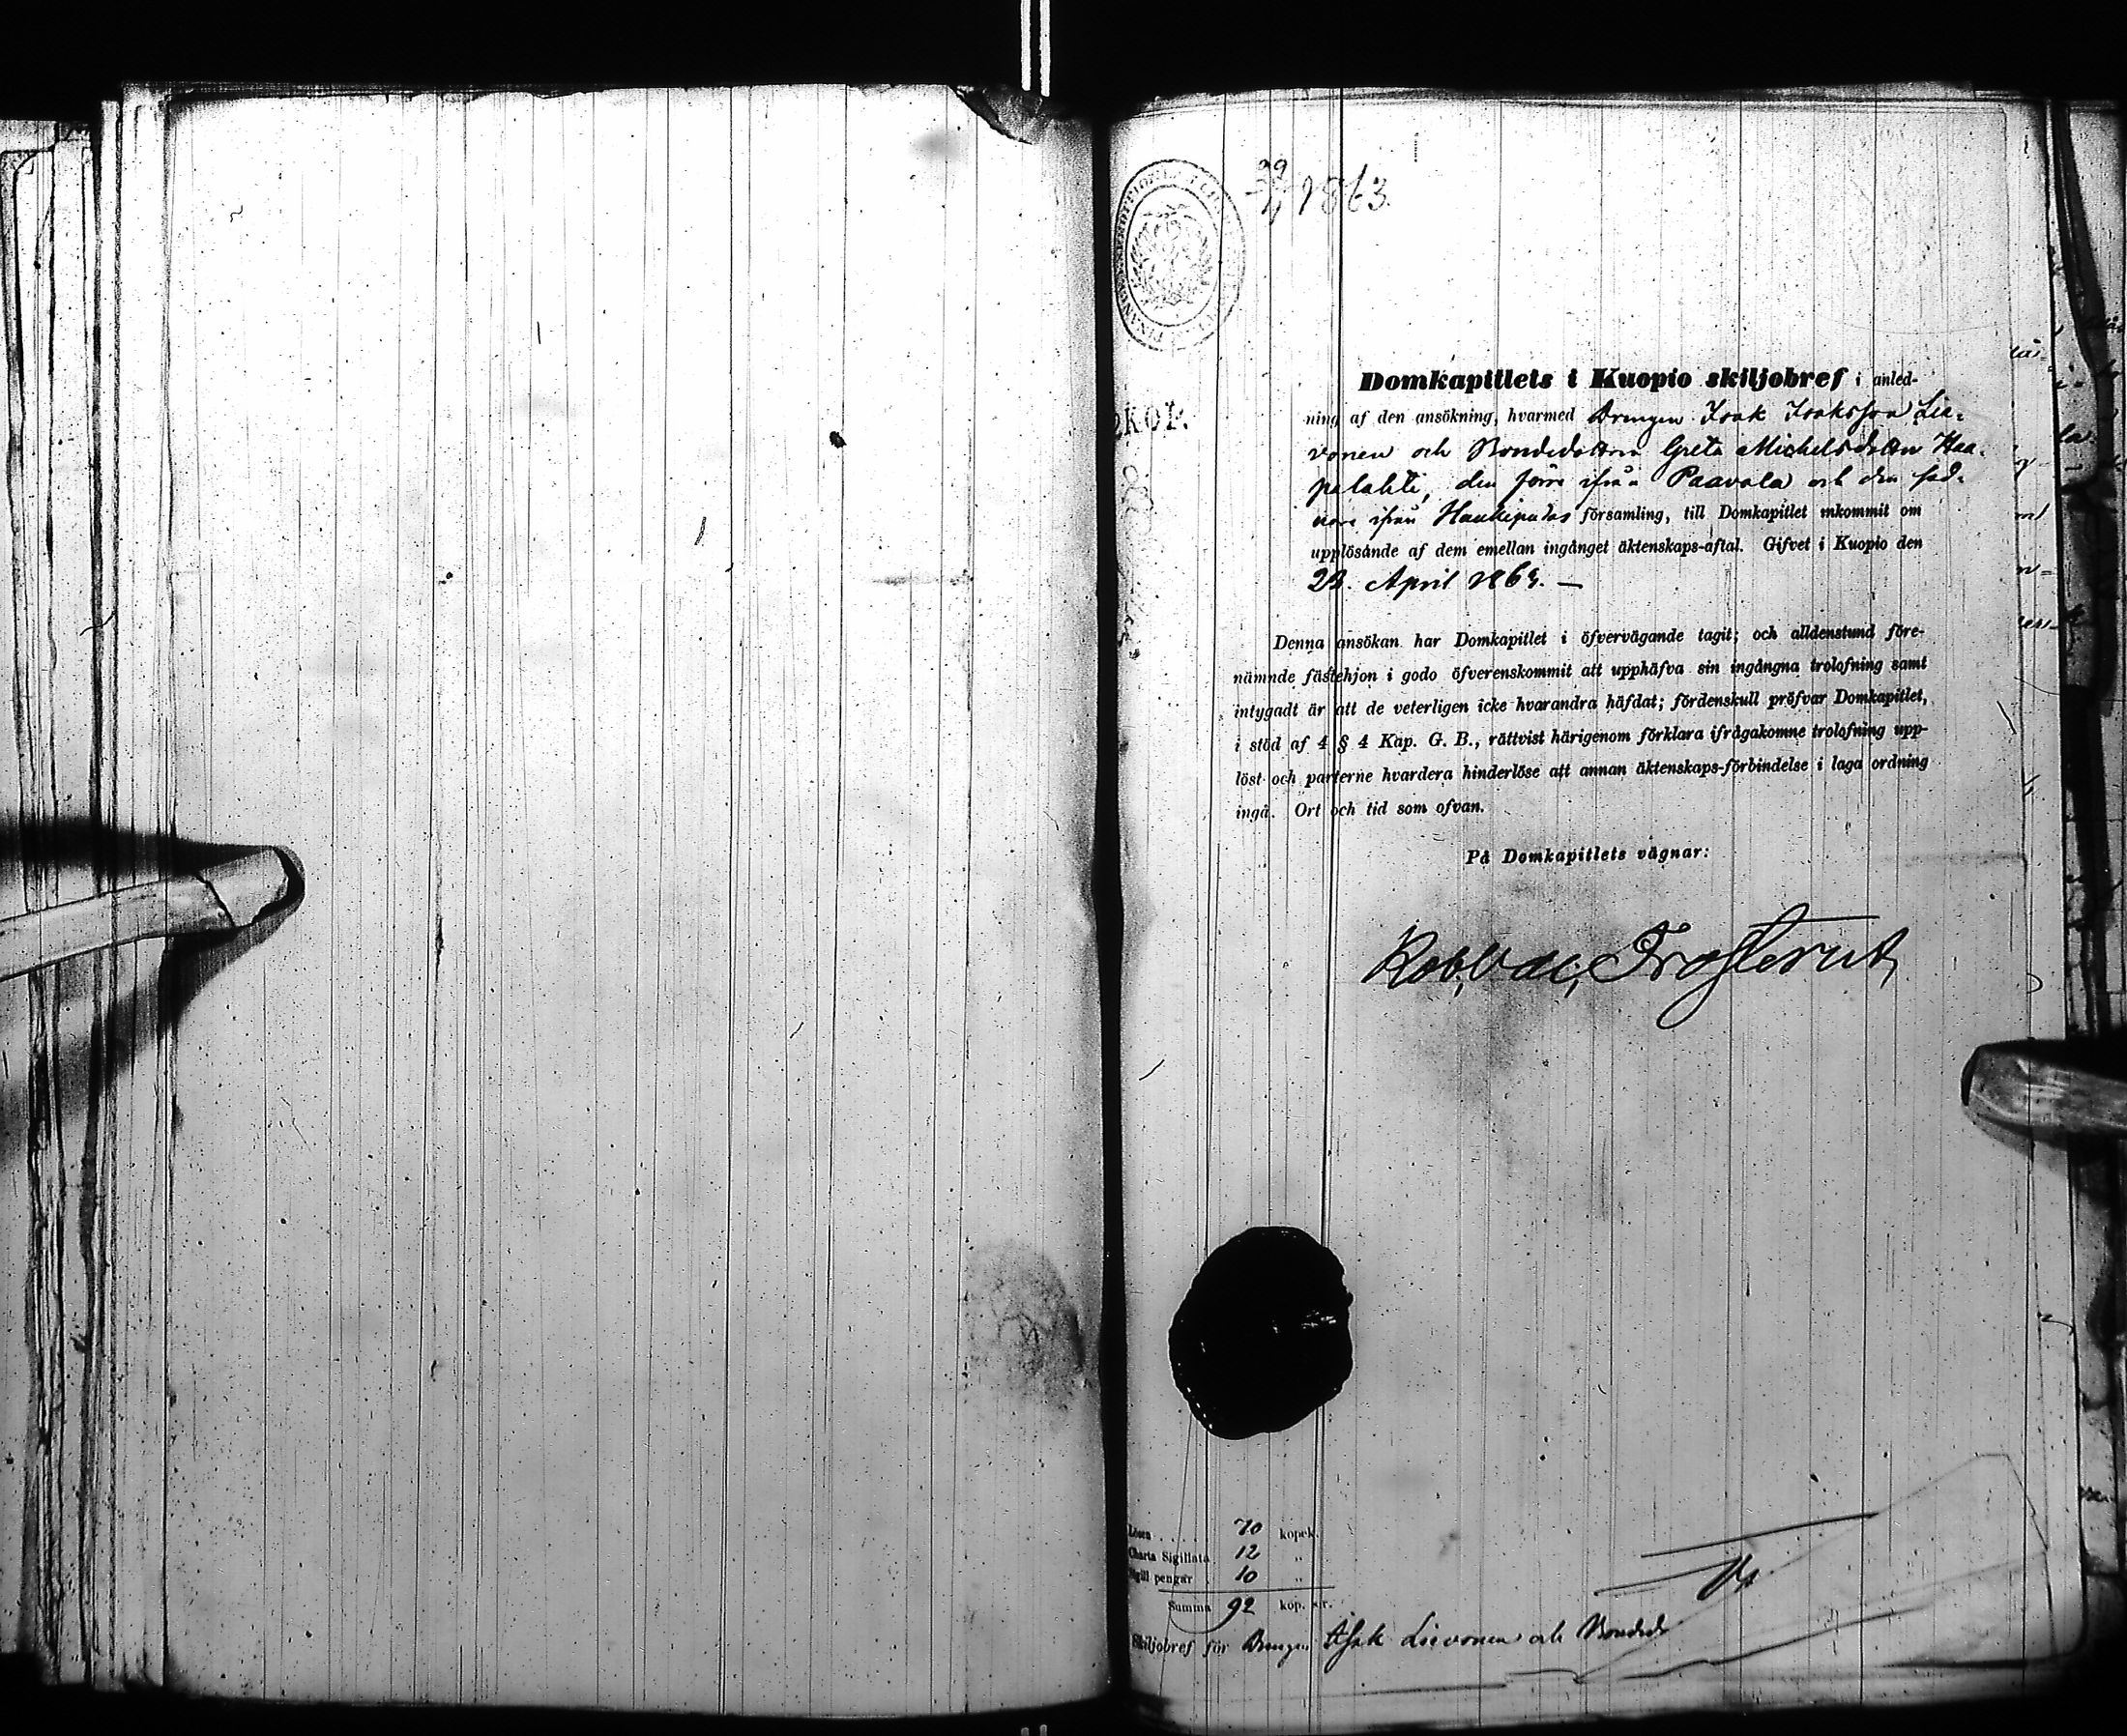 1863.
Domkapitlets i Kuopio skiljobref i anled-
ning af den ansökning, hvarmed Drengen Isak Isaksson Lie-
vonen och Bondedottren Greta Michelsdotter Haa-
palahti, den förre ifrån Paavola och den sed-
nare ifrån Haukipudas församling, till Domkapitlet inkommit om
upplösande af dem emellan ingånget äktenskaps-aftal. Gifvet i Kuopio den
April 1863. —
Denna ansökan har Domkapitlet i öfvervägande tagit; och alldenstund före-
nämnde fästehjon i godo öfverenskommit att upphäfva sin ingångna trolofning samt
intygadt är att de veterligen icke hvarandra häfdat; fördenskull pröfvar Domkapitlet,
i stöd af 4 § 4 Kap. G. B., rättvist härigenom förklara ifrågakomne trolofning upp-
löst och parterne hvardera hinderlöse att annan äktenskaps-förbindelse i laga ordning
ingå. Ort och tid som ofvan.
På Domkapitlets vägnar:
Rob. Val. Frosterus
Lösen . . . . 70 kopek.
Charta Sigillata 12 „
Sigill pengar 10 „
Summa 92 kop. s:r.
Skiljobref för Drengen Isak Lievonen och Bonded